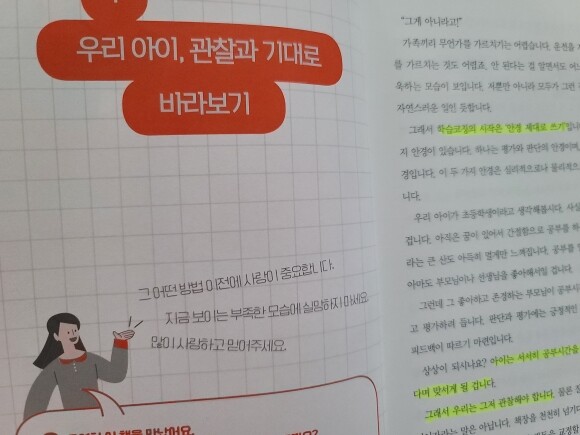 우리 아이, 관찰과 기대로
바라보기
그 어떤 방법 이전에 사랑이 중요합니다.
지금 보이는 부족한 모습에 실망하지 마세요.
많이 사랑하고 믿어주세요.
“그게 아니라고!”
가족끼리 무언가를 가르치기는 어렵습니다. 운전을
를 가르치는 것도 어렵죠. 안 된다는 걸 알면서도
욱하는 모습이 보입니다. 저뿐만 아니라 모두가 그런
자연스러운 일인 듯합니다.
그래서 학습코칭의 시작은 ‘안경 제대로 쓰기’입니
지 안경이 있습니다. 하나는 평가와 판단의 안경이며,
경입니다. 이 두 가지 안경은 심리적으로나 물리적으
니다.
우리 아이가 초등학생이라고 생각해봅시다. 사실
겁니다. 아직은 꿈이 있어서 간절함으로 공부를 하
라는 큰 산도 아득히 멀게만 느껴집니다. 공부를
아마도 부모님이나 선생님을 좋아해서일 겁니다.
그런데 그 좋아하고 존경하는 부모님이 공부시
고 평가하려 듭니다. 판단과 평가에는 긍정적인
피드백이 따르기 마련입니다.
상상이 되시나요? 아이는 서서히 공부시간을
다며 맞서게 될 겁니다.
그래서 우리는 그저 관찰해야 합니다. 물론
이라는 말은 아닙니다. 책장을 천천히 넘기다